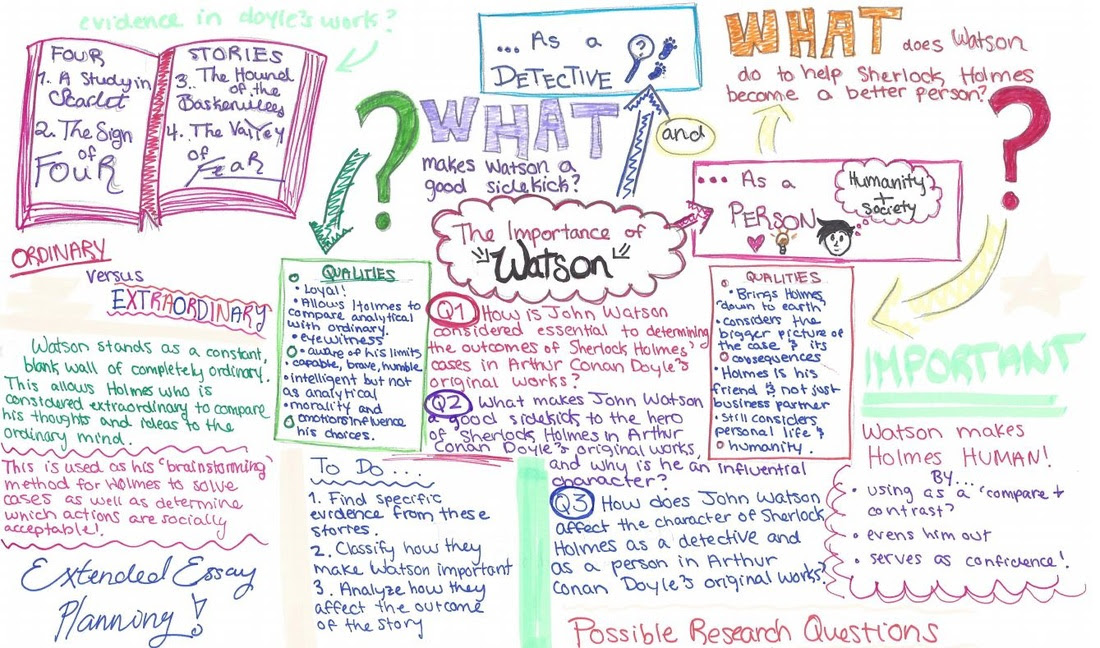 evidence in doyle's work?
FOUR
1. A Study in
Scarlet
2. The Sign
of
FOUR
STORIES
3. The Hound
of the
Baskervilles
4. The Valley
of
FEAR
... As a
DETECTIVE
?
WHAT
makes Watson a
good sidekick?
?
and
WHAT does Watson
do to help Sherlock Holmes
become a better person?
?
... As a
PERSON
Humanity
+
Society
The Importance of
"Watson"
ORDINARY
versus
EXTRAORDINARY
Watson stands as a constant,
blank wall of completely ordinary.
This allows Holmes who is
considered extraordinary to compare
his thoughts and ideas to the
ordinary mind.
This is used as his 'brainstorming'
method for Holmes to solve
cases as well as determine
which actions are socially
acceptable!
Extended Essay
Planning!
QUALITIES
• Loyal!
• Allows Holmes to
compare analytical
with ordinary.
• eyewitness
• aware of his limits
capable, brave, humble
• intelligent but not
as analytical
• morality and
emotions influence
his choices.
To Do...
1. Find specific
evidence from these
stories.
2. Classify how they
make Watson important
3. Analyze how they
affect the outcome
of the story
Q1 How is John Watson
considered essential to determining
the outcomes of Sherlock Holmes'
cases in Arthur Conan Doyle's
original works?
Q2 What makes John Watson
a good sidekick to the hero
of Sherlock Holmes in Arthur
Conan Doyle's original works,
and why is he an influential
character?
Q3 How does John Watson
affect the character of Sherlock
Holmes as a detective and
as a person in Arthur
Conan Doyle's original works?
Possible Research Questions
QUALITIES
• Brings Holmes
down to earth
• considers the
bigger picture of
the case & its
consequences
• Holmes is his
friend & not just
business partner
• Still considers
personal life &
humanity.
IMPORTANT
Watson makes
Holmes HUMAN!
BY...
• using as a 'compare +
contrast?
• evens him out
• serves as confidence!